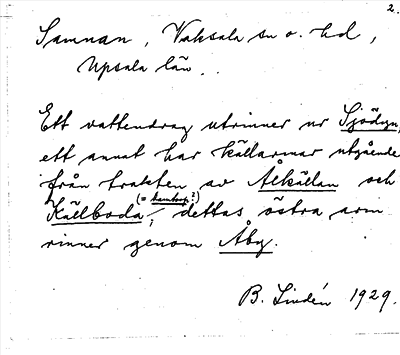 2.
Samnan, Vaksala sn o. hd,
Upsala län.
Ett vattendrag utrinner ur Sjödyn,
ett annat har källarmar utgående
från trakten av Ålkällan och
(= kamtorp?)
Källboda; dettas östra arm
rinner genom Åby.
B. Lindén 1929.